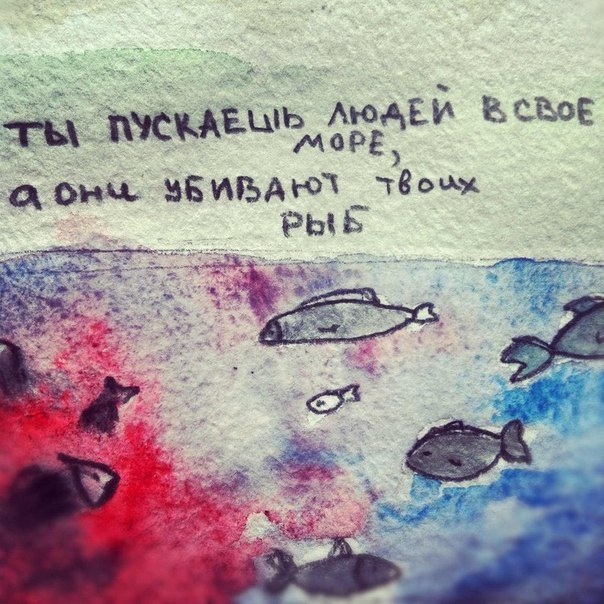 ТЫ ПУСКАЕШЬ ЛЮДЕЙ В СВОЕ
МОРЕ,
а они УБИВАЮТ твоих
РЫБ